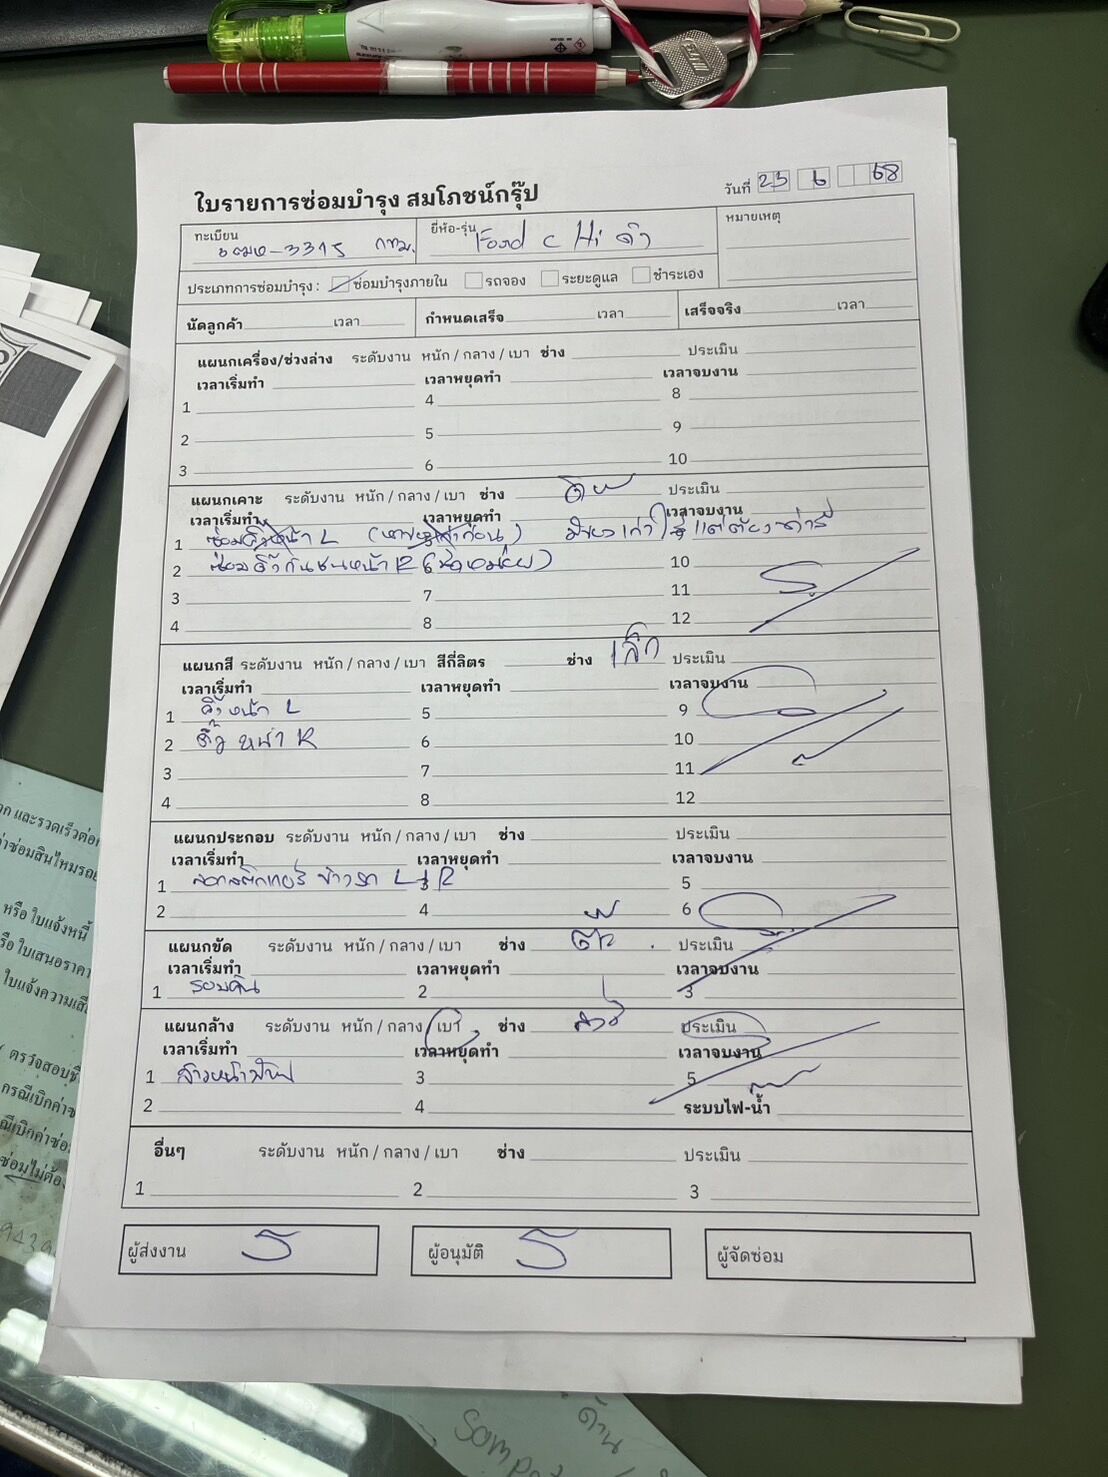 ใบรายการซ่อมบำรุง สมโภชน์กรุ๊ป
วันที่ 23 6 68
ทะเบียน
3315 กทม.
ยี่ห้อ-รุ่น
Ford C Hi ดำ
หมายเหตุ
ประเภทการซ่อมบำรุง : ซ่อมบำรุงภายใน รถจอง ระยะดูแล ชำระเอง
นัดลูกค้า เวลา กำหนดเสร็จ เวลา เสร็จจริง เวลา
แผนกเครื่อง/ช่วงล่าง ระดับงาน หนัก / กลาง / เบา ช่าง ประเมิน
เวลาเริ่มทำ เวลาหยุดทำ เวลาจบงาน
1 4 8
2 5 9
3 6 10
แผนกเคาะ ระดับงาน หนัก / กลาง / เบา ช่าง ประเมิน
เวลาเริ่มทำ เวลาหยุดทำ เวลาจบงาน
1 ซ่อมคิ้วหน้า L มีของเก่าใส่ แต่ต้อง
2 ซ่อมคิ้วกันชนหน้า R 10
3 7 11
4 8 12
แผนกสี ระดับงาน หนัก / กลาง / เบา สีกี่ลิตร ช่าง เล็ก ประเมิน
เวลาเริ่มทำ เวลาหยุดทำ เวลาจบงาน
1 คิ้วหน้า L 5 9
2 คิ้ว หน้า R 6 10
3 7 11
4 8 12
แผนกประกอบ ระดับงาน หนัก / กลาง / เบา ช่าง ประเมิน
เวลาเริ่มทำ เวลาหยุดทำ เวลาจบงาน
1 ลอกสติกเกอร์ ข้างรถ L+R 3 5
2 4 6
แผนกขัด ระดับงาน หนัก / กลาง / เบา ช่าง ประเมิน
เวลาเริ่มทำ เวลาหยุดทำ เวลาจบงาน
1 รอบคัน 2 3
แผนกล้าง ระดับงาน หนัก / กลาง / เบา ช่าง ประเมิน
เวลาเริ่มทำ เวลาหยุดทำ เวลาจบงาน
1 3 5
2 4 ระบบไฟ-น้ำ
อื่นๆ ระดับงาน หนัก / กลาง / เบา ช่าง ประเมิน
1 2 3
ผู้ส่งงาน ผู้อนุมัติ ผู้จัดซ่อม
และรวดเร็วต่อ
ค่าซ่อมสินไหมรถ
หรือใบแจ้งหนี้
หรือใบเสนอราคา
ใบแจ้งความเสีย
ตรวจสอบ
กรณีเบิกค่า
ซ่อมไม่ต้อง
ด้าน